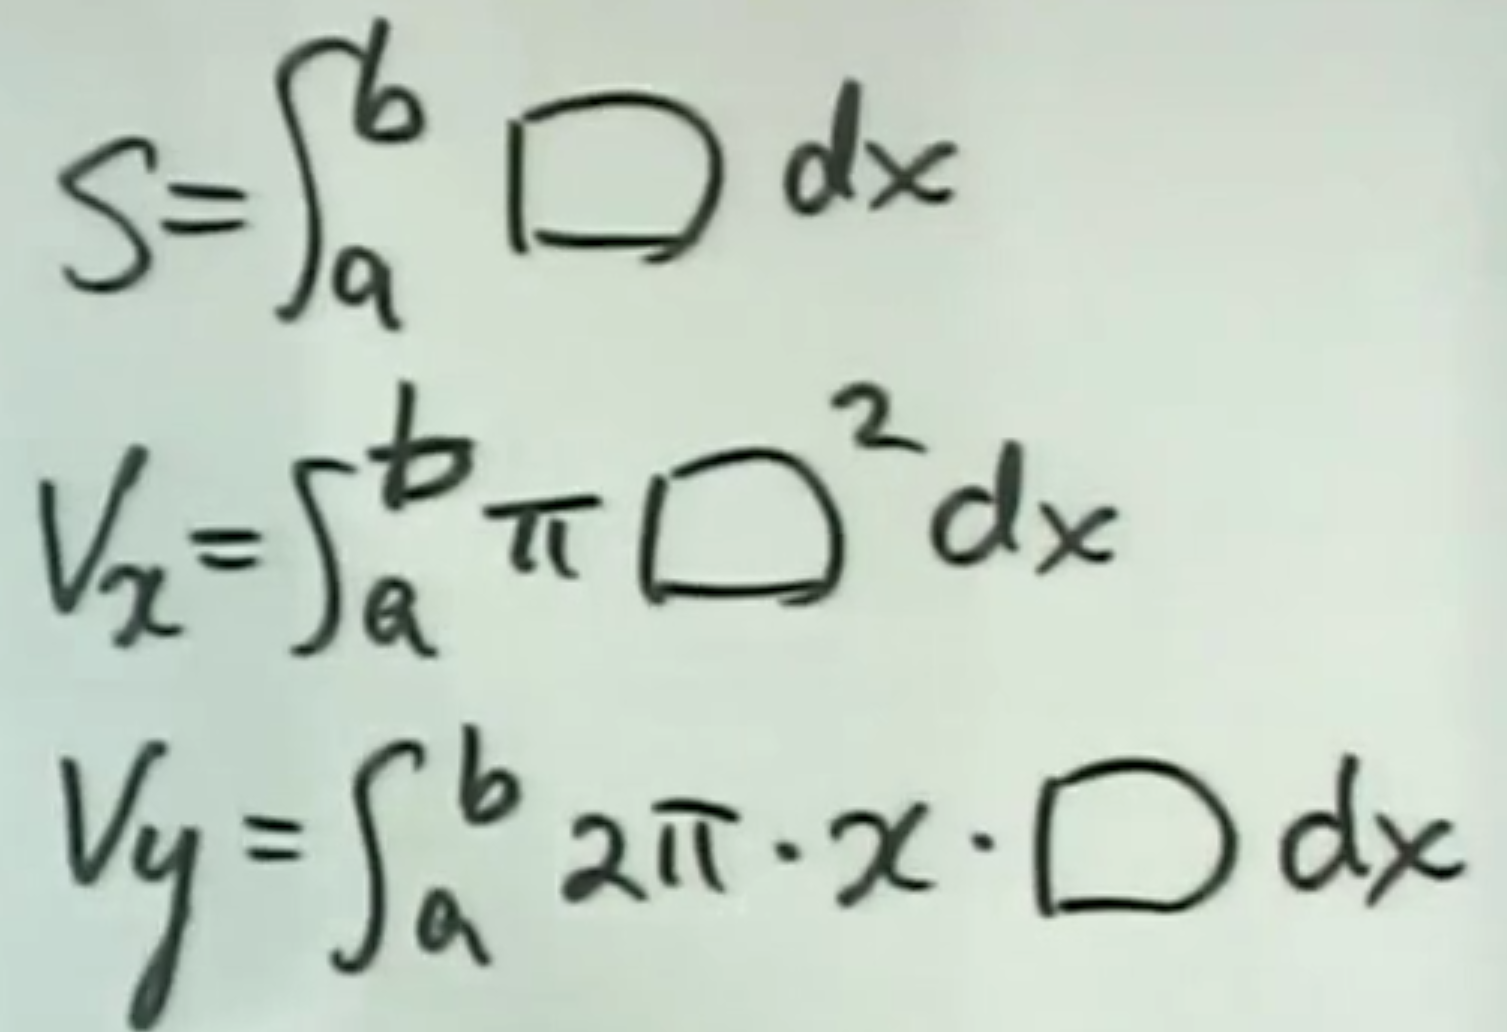 S=∫_a^b □ dx
V_x=∫_a^b π□² dx
V_y=∫_a^b 2π·x·□ dx